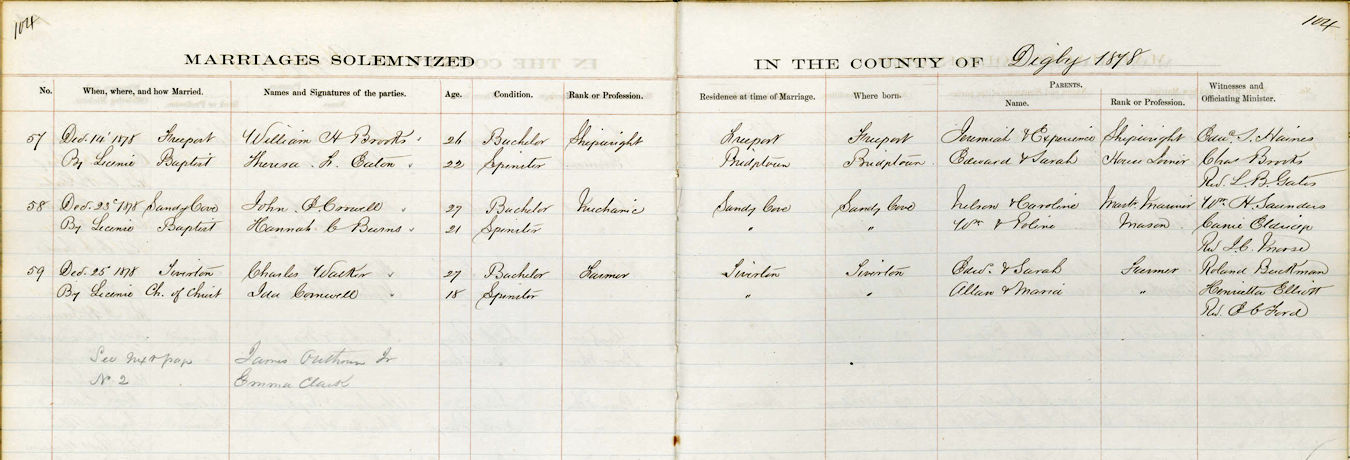 104
104
MARRIAGES SOLEMNIZED IN THE COUNTY OF Digby 1878
No. When, where, and how Married. Names and Signatures of the parties. Age. Condition. Rank or Profession. Residence at time of Marriage. Where born. PARENTS. Name. Rank or Profession. Witnesses and Officiating Minister.
57 Dec. 14 1878 Freeport William H Brooks 26 Bachelor Shipwright Freeport Freeport Jeremiah & Experience Shipwright Edwd. S. Haines
By Licence Baptist Theresa H. Eaton 22 Spinster Edward & Sarah House Joiner Chas Brooks
Rev. L. B. Gates
58 Dec. 25 1878 Sandy Cove John 27 Bachelor Mechanic Sandy Cove Sandy Cove Nelson & Caroline Mastr Mariner Wm. H. Saunders
By Licence Baptist Hannah C Burns 21 Spinster " " Wm & Mason
Rev. J. C. Morse
59 Dec. 25 1878 Tiverton Charles Walker 27 Bachelor Farmer Tiverton Tiverton Edwd. & Sarah Farmer Roland
By Licence Ch. of Christ Ida 18 Spinster " " Allan & Maria " Henrietta Elliott
Rev. E C Ford
See next page James Outhouse Jr
No 2 Emma Clark